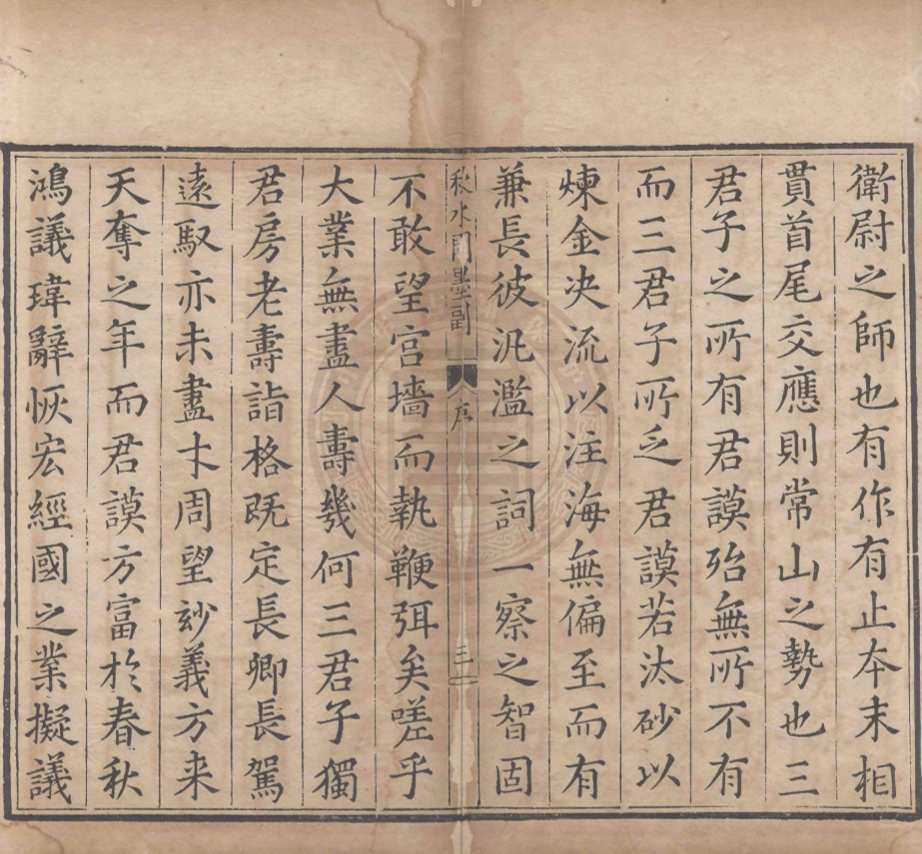 衛尉之師也有作有止本末相
貫首尾交應則常山之勢也三
君子之所有君謨殆無所不有
而三君子所乏君謨若汰砂以
煉金决流以注海無偏至而有
兼長彼汎濫之詞一察之智固
秋水閣墨副 序 三
不敢望宮墻而執鞭弭矣嗟乎
大業無盡人壽幾何三君子獨
君房老壽詣格既定長卿長駕
遠馭亦未盡才周望玅義方来
天奪之年而君謨方富於春秋
鴻議瑋辭恢宏經國之業擬議